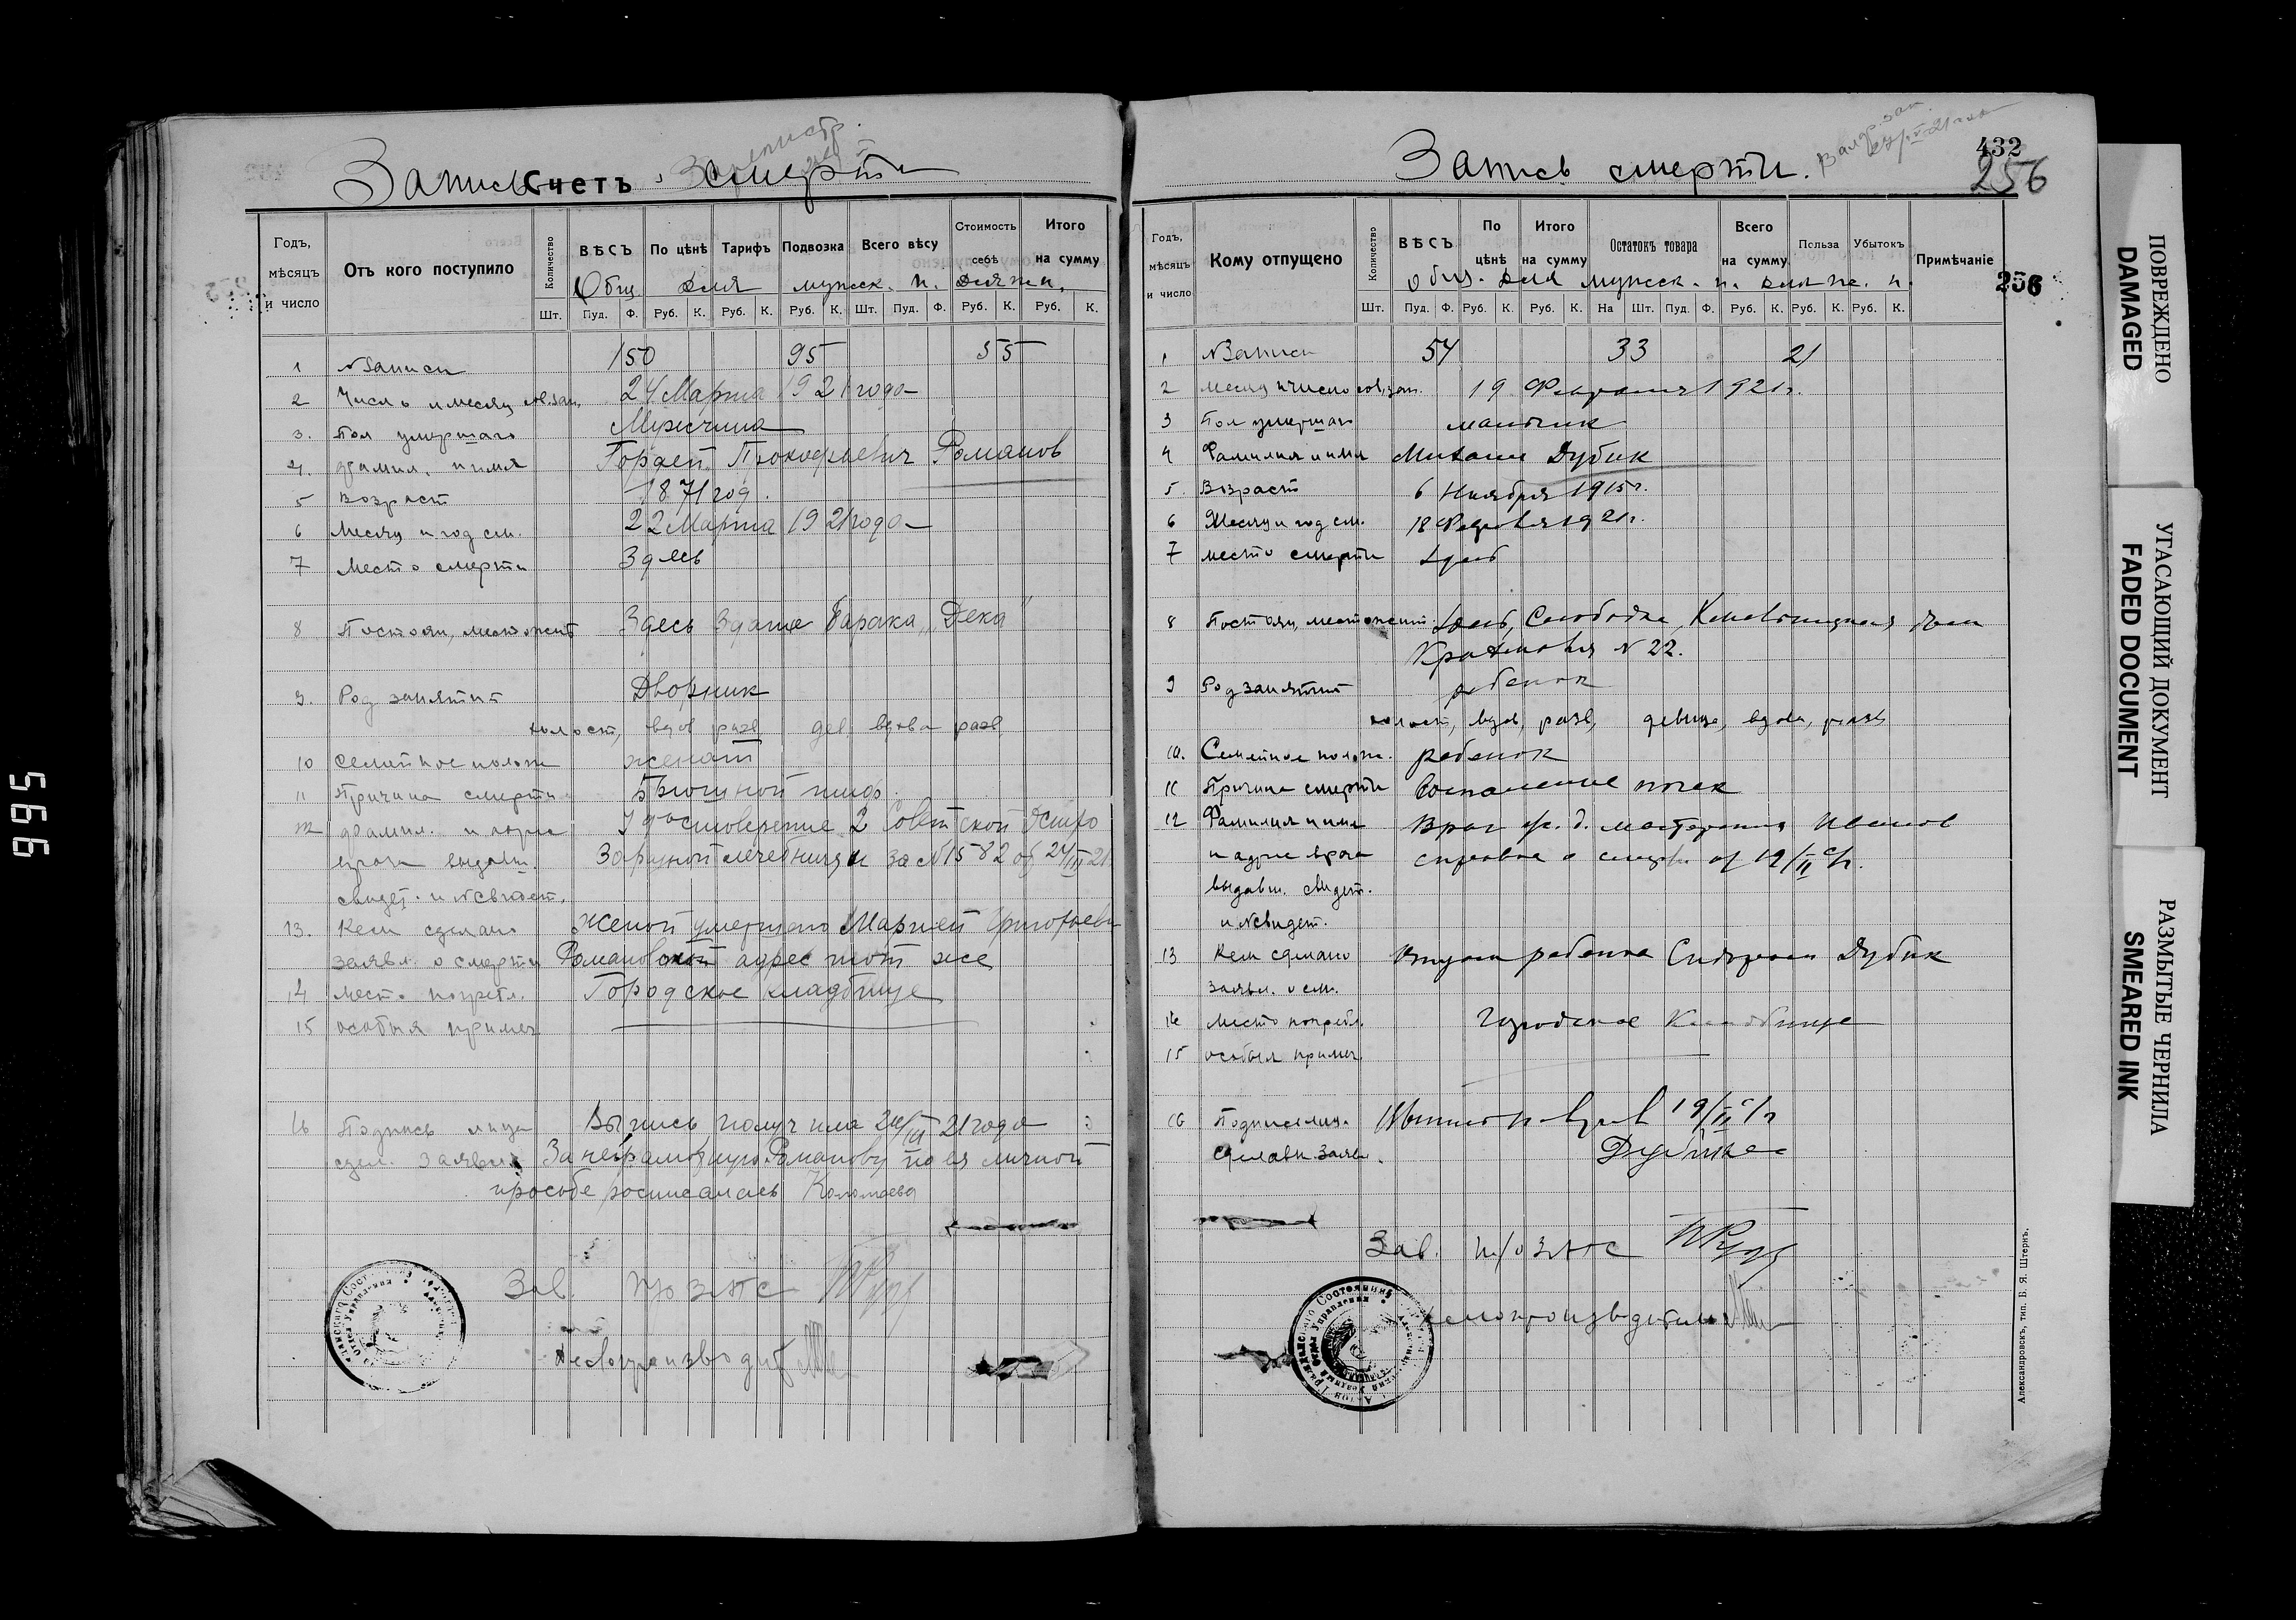 Запись смерти
Счетъ
Годъ, мѣсяцъ и число
Отъ кого поступило
Количество
ВѢСЪ
По цѣнѣ
Тарифъ
Подвозка
Всего вѣсу
Стоимость себѣ
Итого на сумму
Общ. для мужск. п. для ж. п.
Шт. Пуд. Ф. Руб. К. Руб. К. Руб. К. Шт. Пуд. Ф. Руб. К. Руб. К.
1 №записи 150 95 55
2 Число и месяц сов. зап. 24 Марта 1921 года
3. Пол умершаго Мужчина
4. фамил. и имя Гордей Прокофьевич Романов
5 возраст 1871 год.
6 Месяц и год см. 22 Марта 1921 года
7 Место смерти Здесь
8 Постоян. местожит Здесь здание барака „Дека"
9. Род занятий Дворник
холост, вдов разв дев. вдова разв
10 Семейное полож женат
11 Причина смерти Брюшной тиф.
12 фамил. и адрес Удостоверение 2 Советской Остро
врача выдавш. Заразной лечебницы за №1582 от 24/III 21
свидет. и №свидет.
13. Кем сделано Женой умершаго Марией Григорьевн
заявл. о смерти Романовой адрес тот же
14 место погребл. Городское кладбище
15 особыя примеч
16 Подпись лица Выпись получила 24/III 21 года
сдел. заявл За неграмотную Романову по ея личной
просьбе росписалась Коломаева
Зав. п/о ЗАГС
Делопроизводит
Запись смерти.
432
256
256
Годъ, мѣсяцъ и число
Кому отпущено
Количество
ВѢСЪ
По цѣнѣ
Итого на сумму
Остатокъ товара
Всего на сумму
Польза
Убытокъ
Примѣчаніе
Общ. для мужск. п. для ж. п.
Шт. Пуд. Ф. Руб. К. Руб. К. На Шт. Пуд. Ф. Руб. К. Руб. К. Руб. К.
1 №Записи 54 33 21
2 месяц и число сов. зап. 19 Февраля 1921 г.
3 Пол умершаго мальчик
4 Фамилия и имя Михаил Дубик
5. Возраст 6 Ноября 1915 г.
6 Месяц и год см. 18 Февраля 1921 г.
7 место смерти здесь
8 Постоян. местожит. здесь, Слободка,
№ 22.
9 Род занятий ребенок
холост, вдов, разв, девица, вдова, разв
10. Семейное полож. ребенок
11 Причина смерти Воспаление почек
12 Фамилия и имя Врач ж. д. мастерских Иванов
и адрес врача справка о смерти от 19/II с/г.
выдавш. свидет.
и №свидет.
13 Кем сделано отцом ребенка Сидором Дубик
заявл. о см.
14 Место погребл. Городское Кладбище
15 особыя примеч.
16 Подпись лица Выпись 19/II с/г
сделавш. заявл. Дубик
Зав. п/о ЗАГС
Делопроизводитель
Александровскъ, тип. Б. Я. Штернъ.
ПОВРЕЖДЕНО
DAMAGED
УГАСАЮЩИЙ ДОКУМЕНТ
FADED DOCUMENT
РАЗМЫТЫЕ ЧЕРНИЛА
SMEARED INK
566